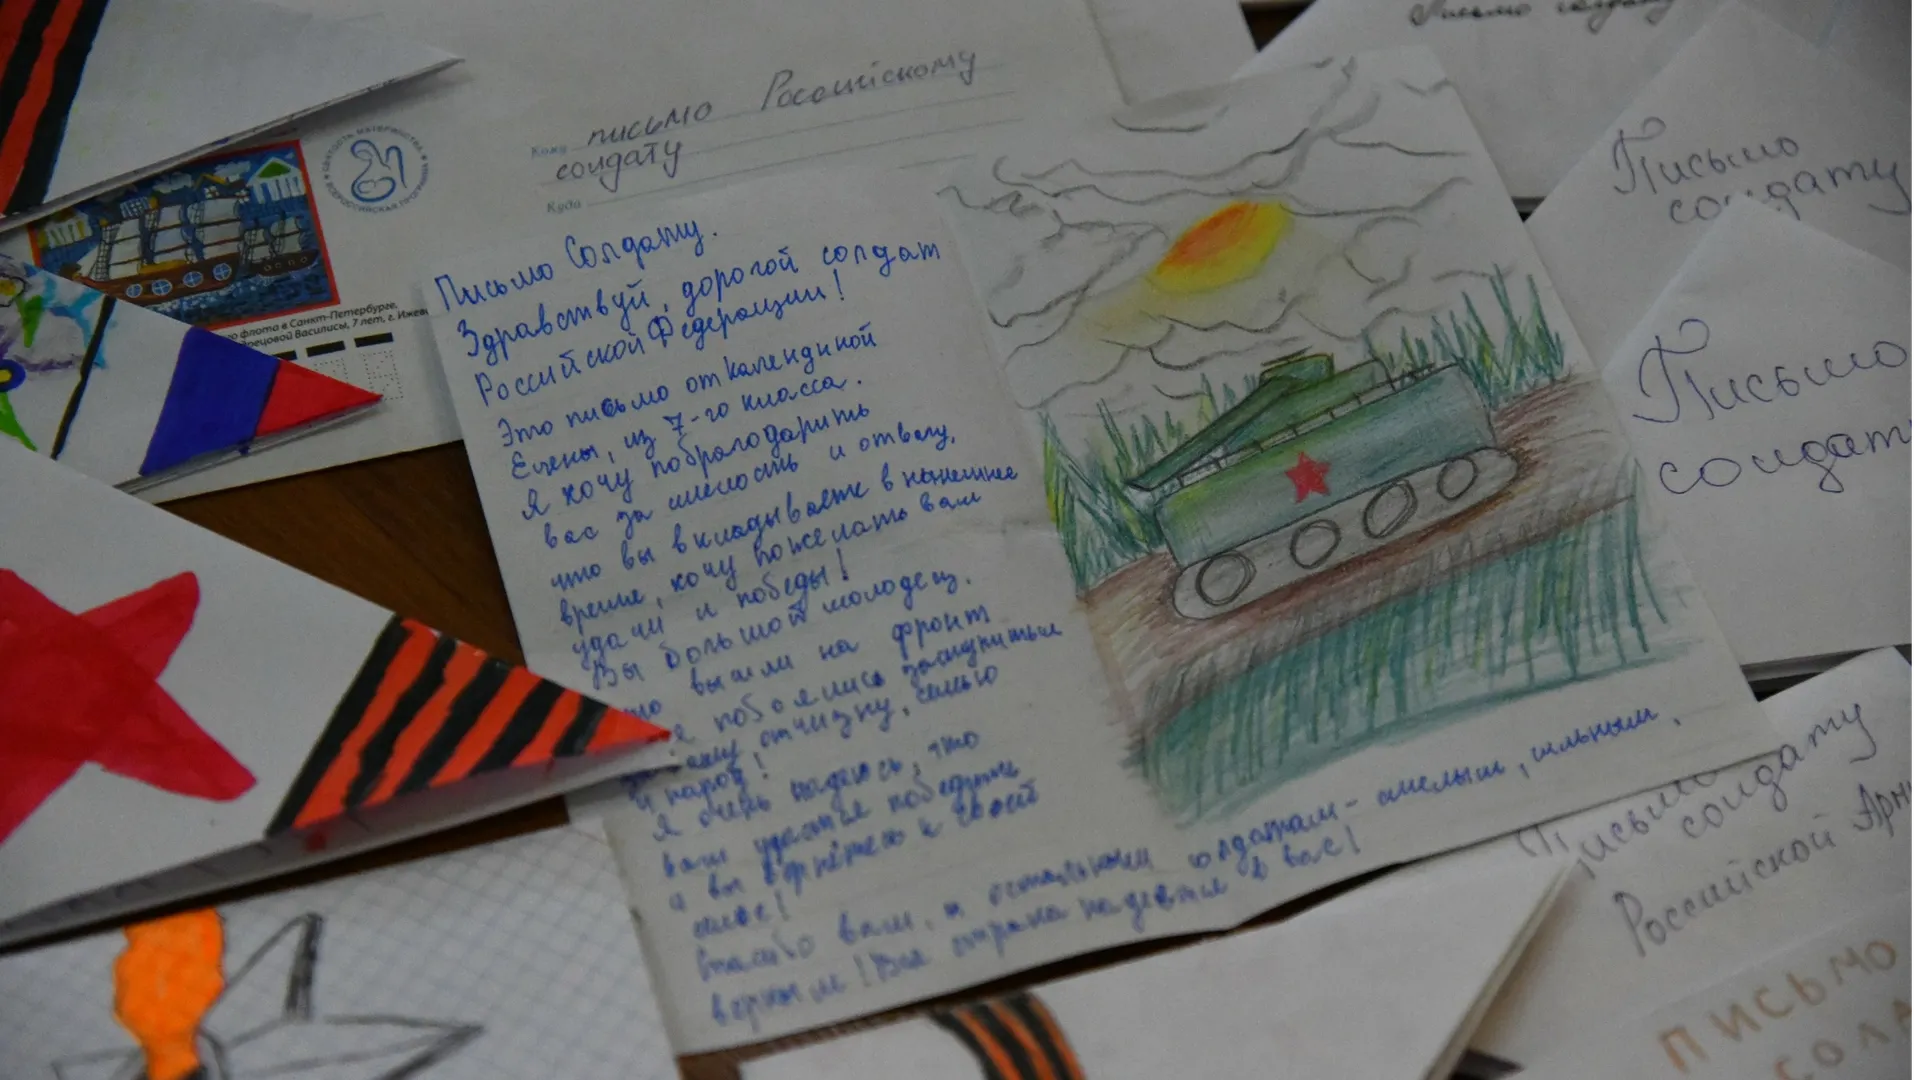 Письмо солдату
Кому письмо Российскому
солдату
Куда
СВЯТОСТЬ МАТЕРИНСТВА
ВСЕРОССИЙСКАЯ ПРОГРАММА
флота в Санкт-Петербурге,
Василисы, 7 лет, г. Ижев
Письмо Солдату.
Здравствуй, дорогой солдат
Российской Федерации!
Это письмо от календиной
Елены, из 7-го класса.
Я хочу поблагодарить
вас за смелость и отвагу,
что вы вкладываете в нынешнее
время, хочу пожелать вам
удачи и победы!
Вы большой молодец,
что вышли на фронт
не побоялись заступиться
отчизну, семью
и народ!
Я очень надеюсь, что
ваш
а вы вернётесь к своей
семье!
Спасибо вам, и остальным солдатам - смелым, сильным,
верным! Вся страна надеется в вас!
Письмо
солдату
Письмо
солдат
Письмо
солдату
Российской Арм
ПИСЬМО
СОЛД